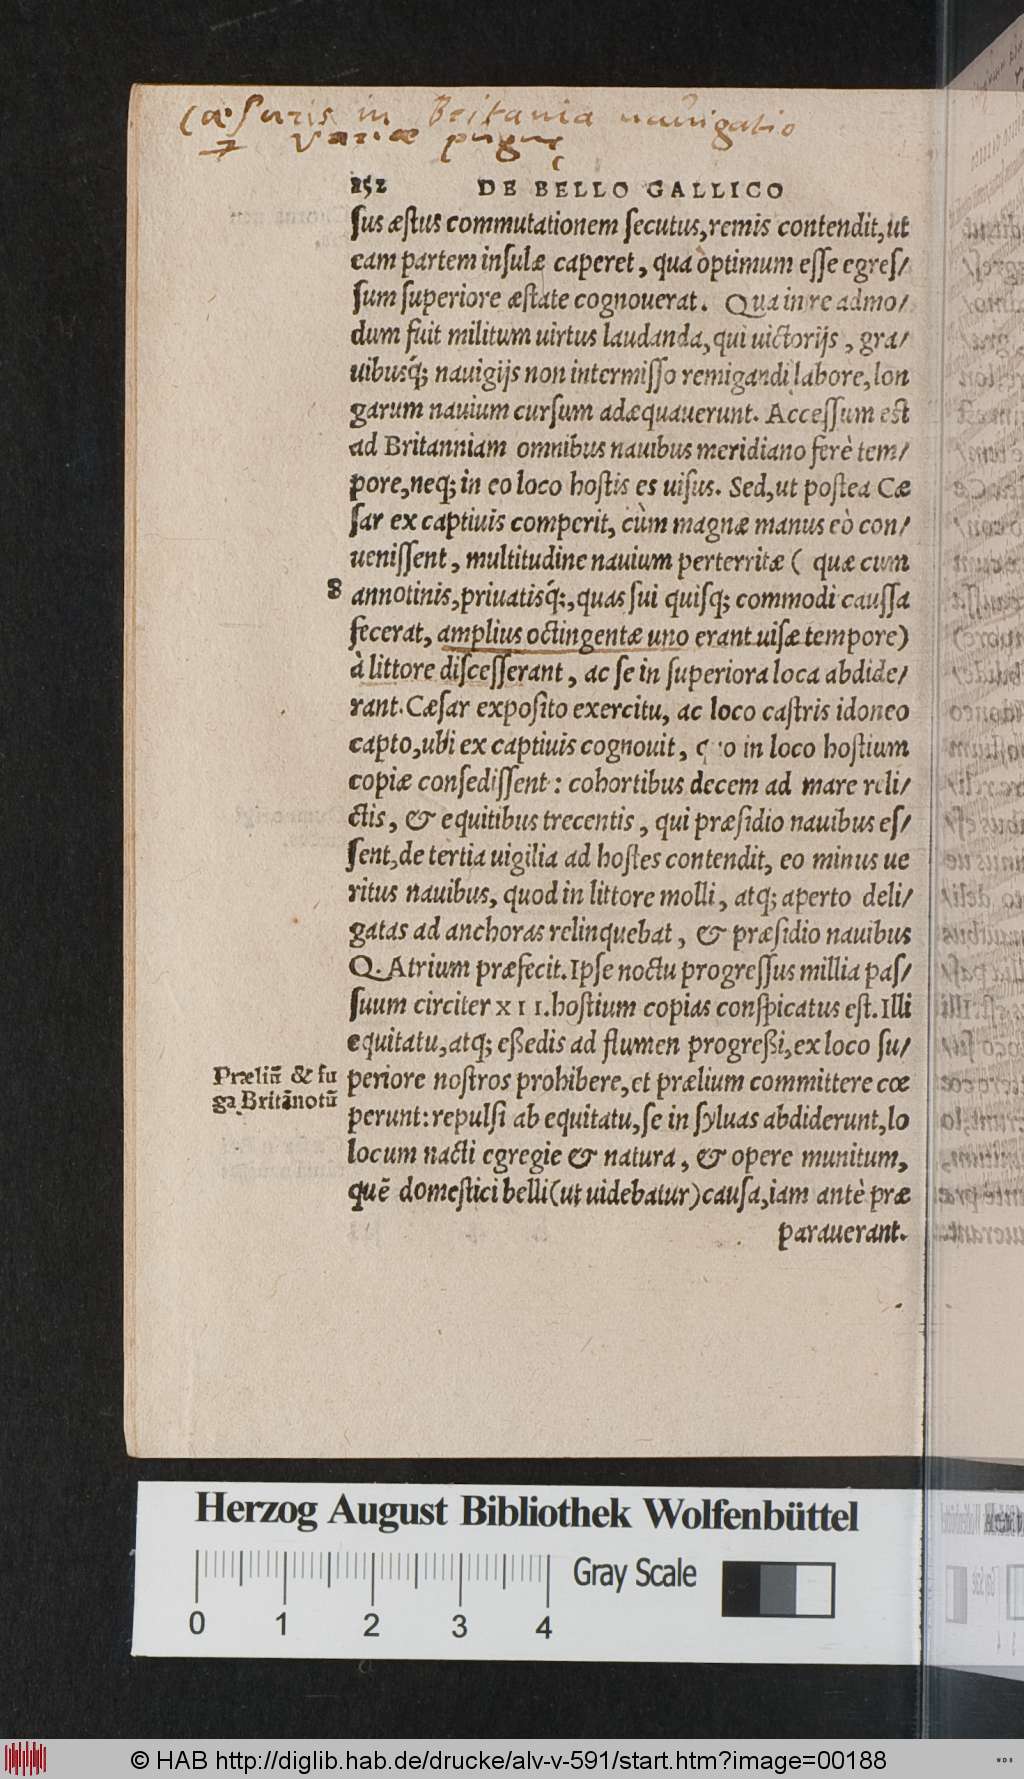 Cæsaris in Britania nauigatio
Variæ pugnę
252 DE BELLO GALLICO
ſus æſtus commutationem ſecutus, remis contendit, ut
eam partem inſulæ caperet, qua optimum eſſe egreſ/
ſum ſuperiore æſtate cognouerat. Qua in re admo/
dum fuit militum uirtus laudanda, qui uictorijs, gra/
uibusq́; nauigijs non intermiſſo remigandi labore, lon
garum nauium curſum adæquauerunt. Acceſſum est
ad Britanniam omnibus nauibus meridiano ferè tem/
pore, neq; in eo loco hoſtis es uiſus. Sed, ut poſtea Cæ
ſar ex captiuis comperit, cùm magnæ manus eò con/
ueniſſent, multitudine nauium perterritæ ( quæ cum
8 annotinis, priuatisq́;, quas ſui quiſq; commodi cauſſa
fecerat, amplius octingentæ uno erant uiſæ tempore)
à littore diſceſſerant, ac ſe in ſuperiora loca abdide/
rant. Cæſar expoſito exercitu, ac loco caſtris idoneo
capto, ubi ex captiuis cognouit, quo in loco hoſtium
copiæ conſediſſent: cohortibus decem ad mare reli/
ctis, & equitibus trecentis, qui præſidio nauibus eſ/
ſent, de tertia uigilia ad hoſtes contendit, eo minus ue
ritus nauibus, quod in littore molli, atq; aperto deli/
gatas ad anchoras relinquebat, & præſidio nauibus
Q. Atrium præfecit. Ipſe noctu progreſſus millia paſ/
ſuum circiter XII. hoſtium copias conſpicatus eſt. Illi
equitatu, atq; eßedis ad flumen progreßi, ex loco ſu/
Præliū & fu
ga Britānotū
periore noſtros prohibere, et prælium committere cœ
perunt: repulſi ab equitatu, ſe in ſyluas abdiderunt, lo
locum nacti egregie & natura, & opere munitum,
quē domeſtici belli (ut uidebatur) cauſa, iam antè præ
parauerant.
Herzog August Bibliothek Wolfenbüttel
0 1 2 3 4 Gray Scale
© HAB http://diglib.hab.de/drucke/alv-v-591/start.htm?image=00188